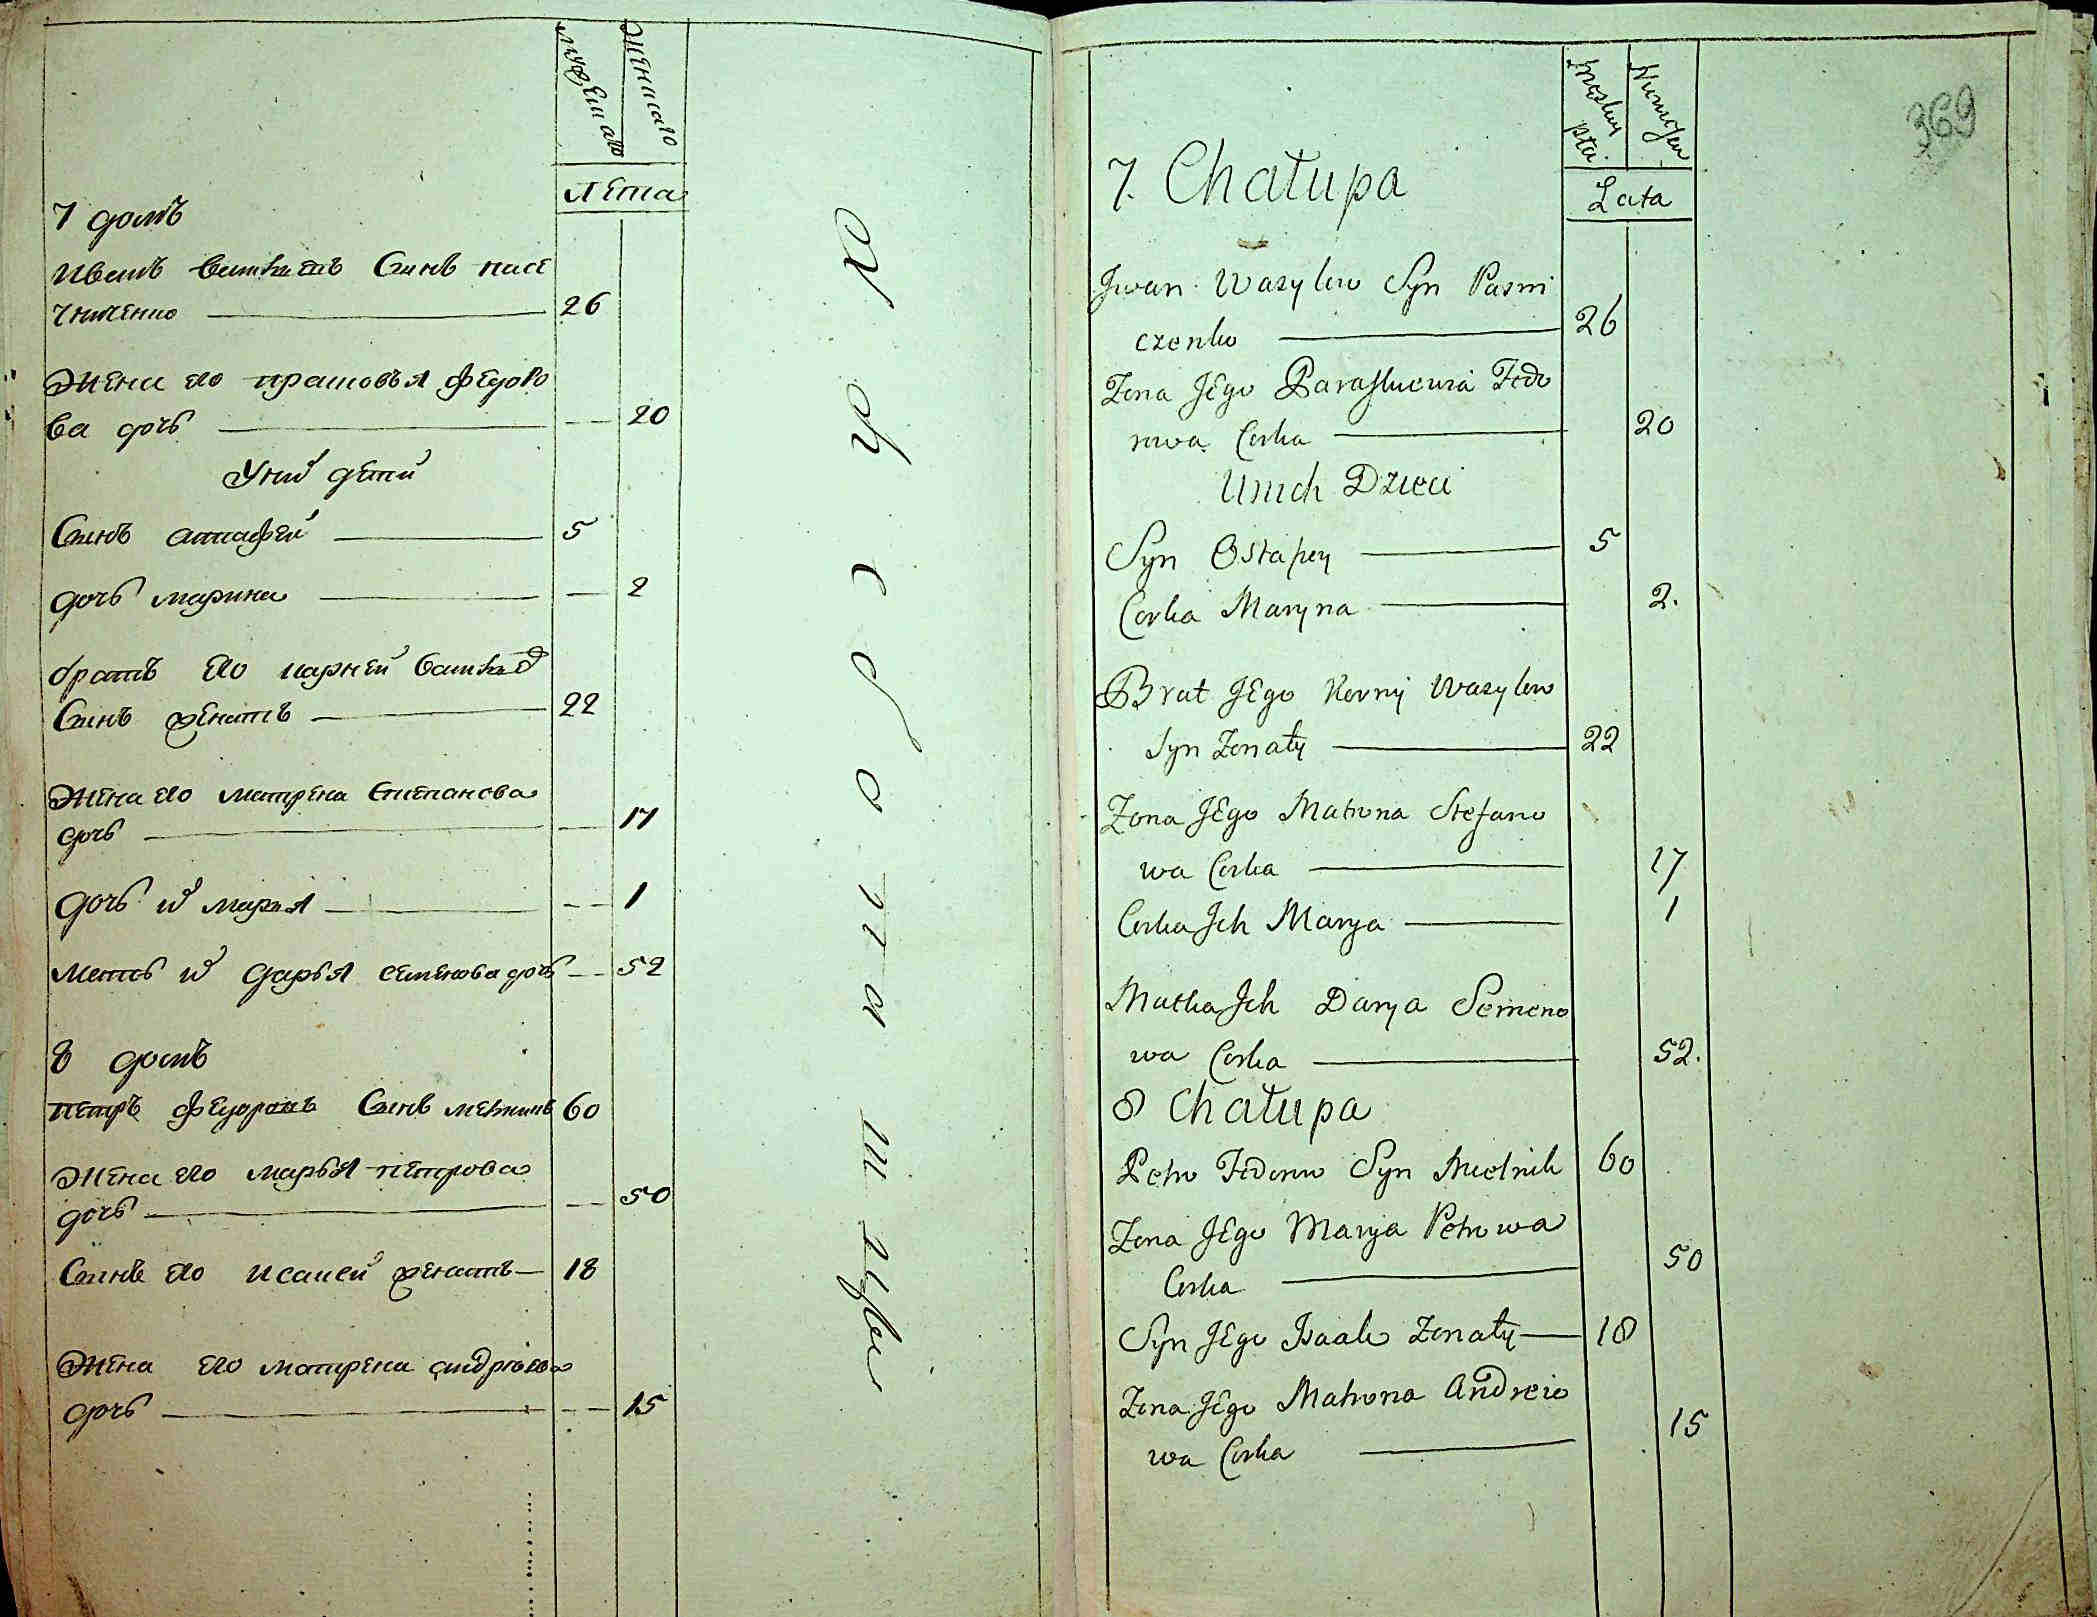 мужеска
женскаго
Лета
7 домъ
Иванъ Васильевъ Синъ пасе
чниченко 26
Жена его прасковья федоро
ва дочь 20
У них дети
Синъ 5
дочь марина 2
братъ его карней Васильев
Синъ женатъ 22
Жена его матрена Степанова
дочь 17
дочь их марья 1
Мать их дарья семенова дочь 52
8 домъ
петръ федоровъ Синъ 60
Жена его марья петрова
дочь 50
Синъ его исакей женатъ 18
Жена его матрена андреева
дочь 15
369
Męskiey
Płci
Lata
7. Chałupa
Jwan Wasylow Syn Pasni
czenko 26
Zona JEgo Paraskiewia Fedo
rowa Corka 20
Unich Dzieci
Syn Ostapey 5
Corka Maryna 2.
Brat JEgo Korny Wasylow
Syn Zonaty 22
Zona JEgo Matrona Stefano
wa Corka 17
Corka Jch Marya 1
Matka Jch Darya Semeno
wa Corka 52.
8 Chałupa
Petro Fedorow Syn Mielnik 60
Zona JEgo Marya Petrowa
Corka 50
Syn JEgo Isaak Zonaty 18
Zona JEgo Matrona Andreio
wa Corka 15